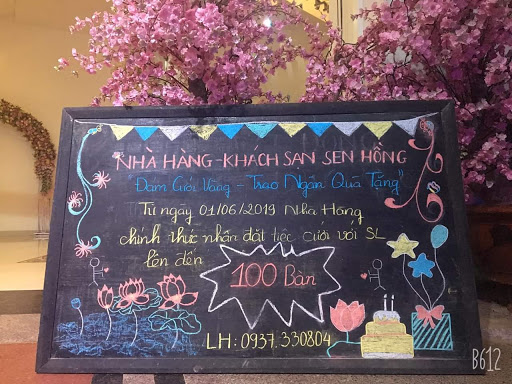 NHÀ HÀNG - KHÁCH SẠN SEN HỒNG
"Đám Cưới Vàng - Trao Ngàn Quà Tặng"
Từ ngày 01/06/2019 Nhà Hàng
chính thức nhận đặt tiệc cưới với SL
lên đến
100 BÀN
LH: 0937.330804
B612